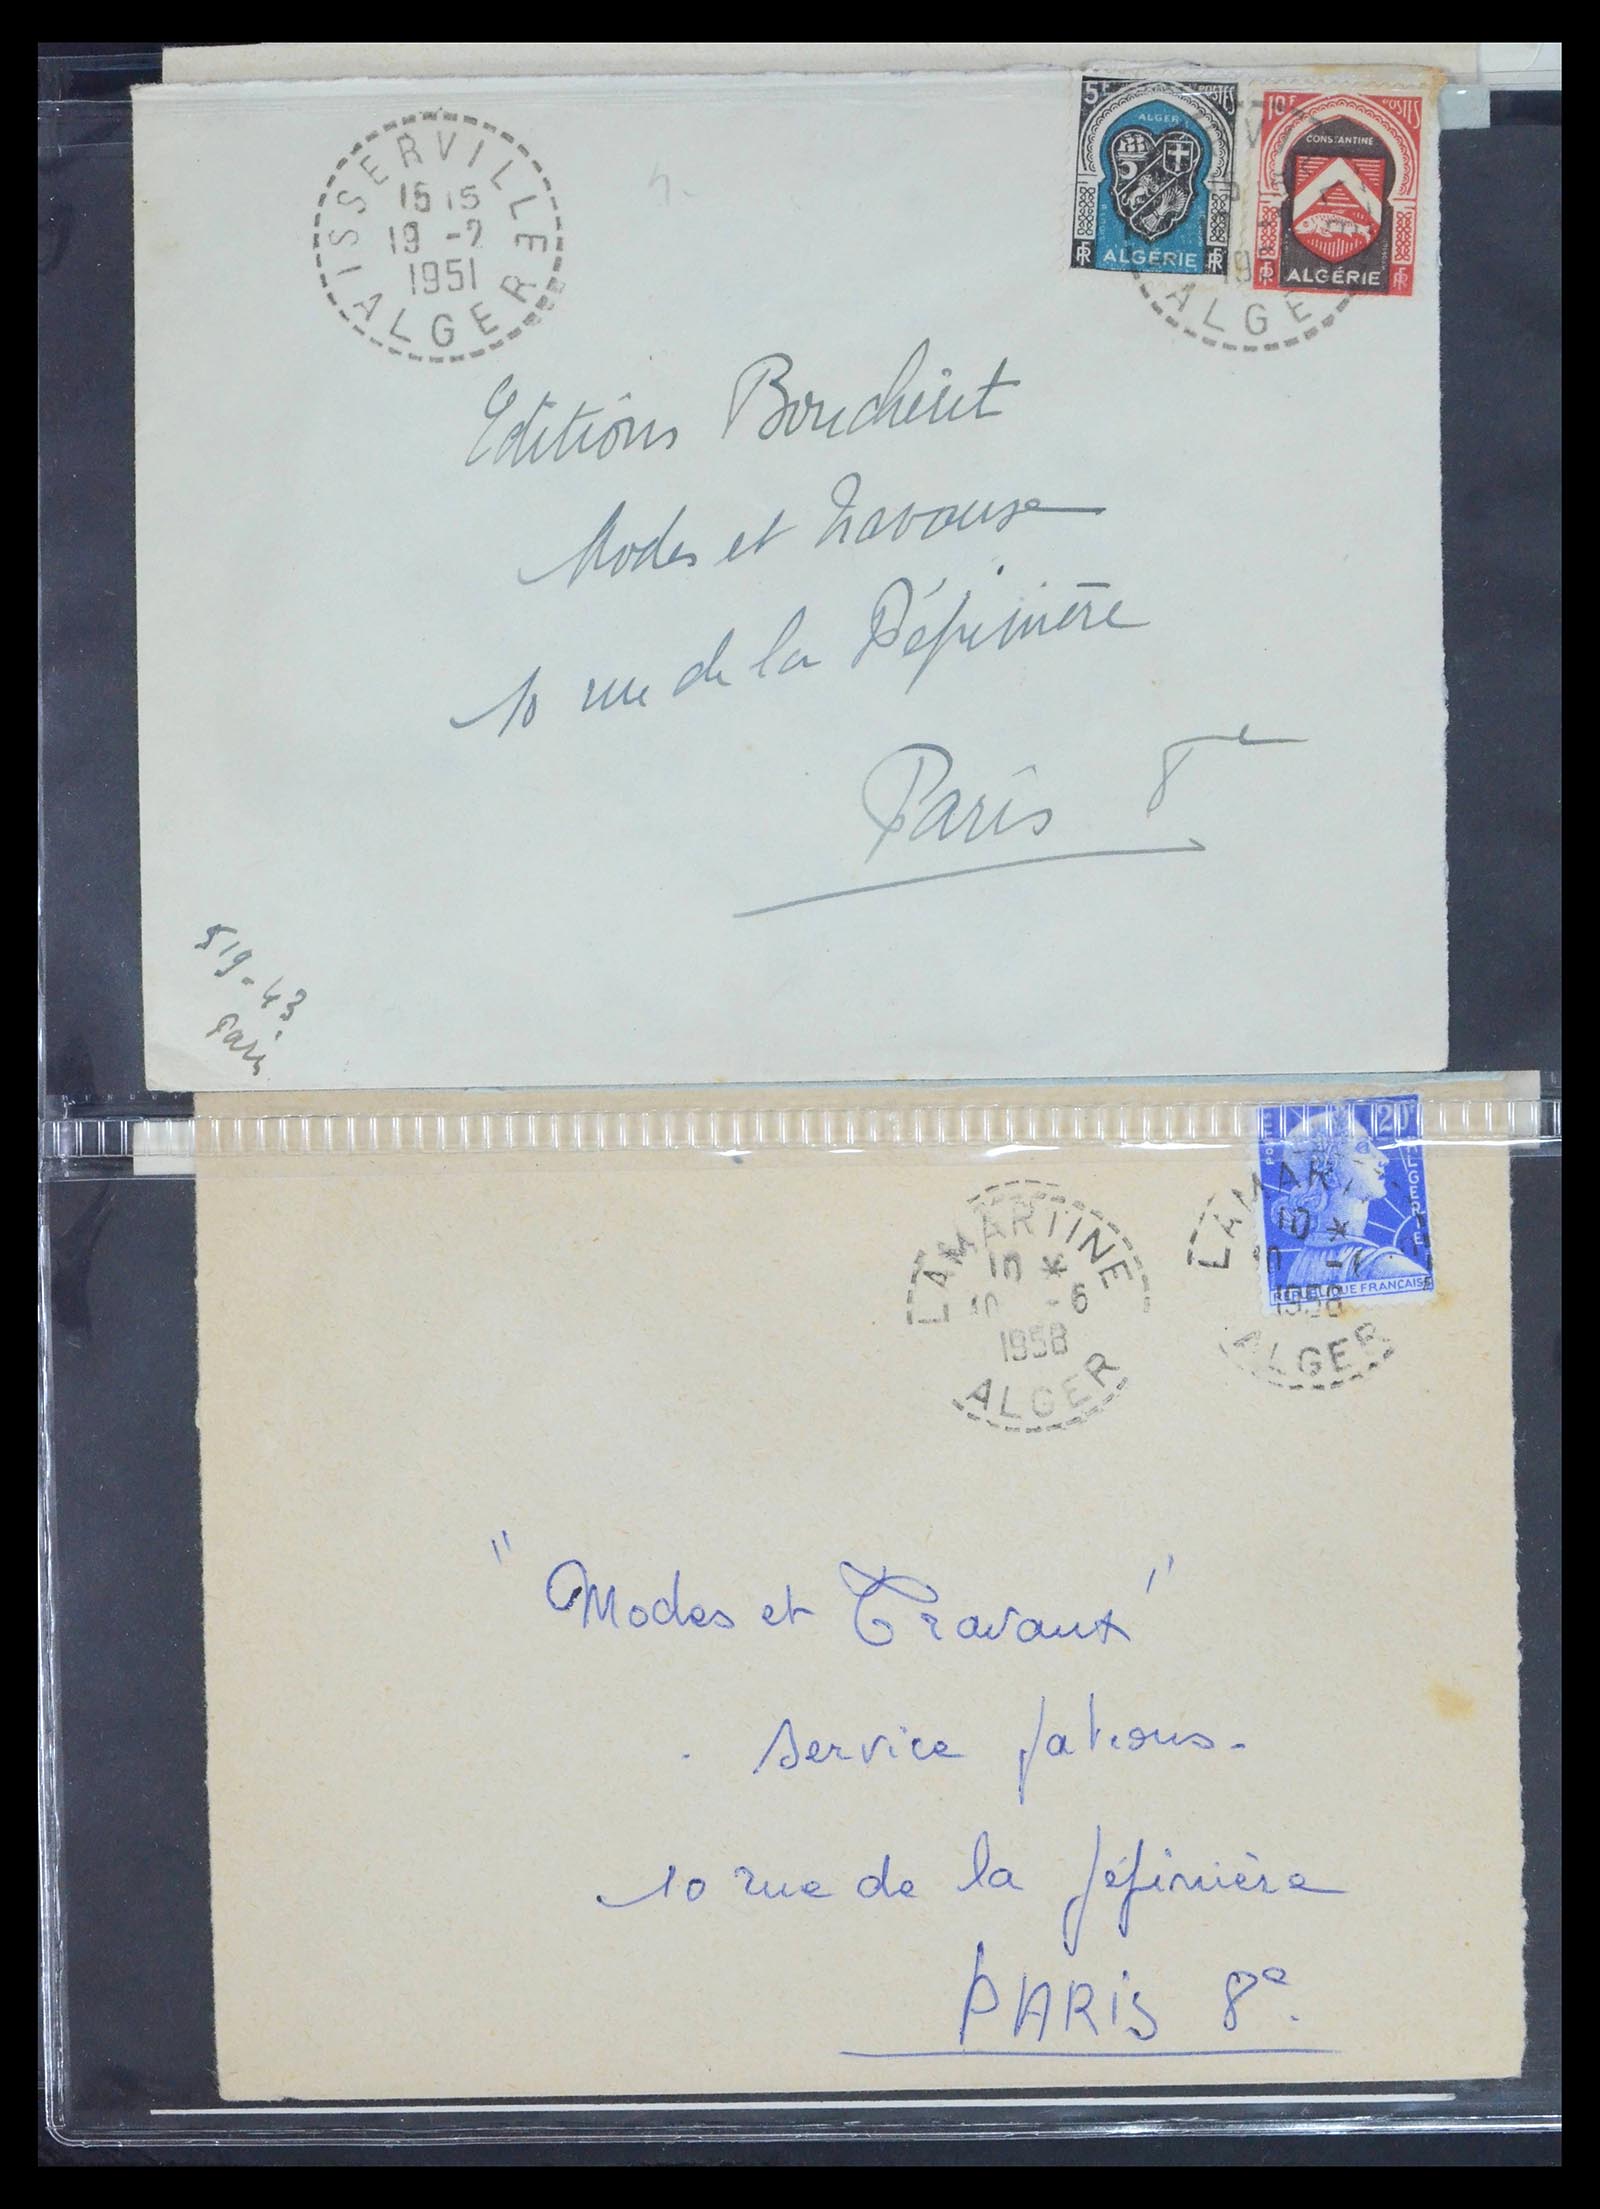 ISSERVILLE
15 15
19 -2
1951
ALGER
5F POSTES
ALGER
RF ALGÉRIE RF
10F POSTES
CONSTANTINE
RF ALGÉRIE RF
ALGE
Editions Boucherit
Modes et Travaux
10 rue de la Pépinière
Paris 8e
519-43
Paris
POSTES 20F
ALGERIE
REPUBLIQUE FRANÇAISE
LAMARTINE
10 *
10 -6
1958
ALGER
LAMAR
10 *
1958
ALGER
"Modes et Travaux"
Service patrons-
10 rue de la Pépinière
PARIS 8e.